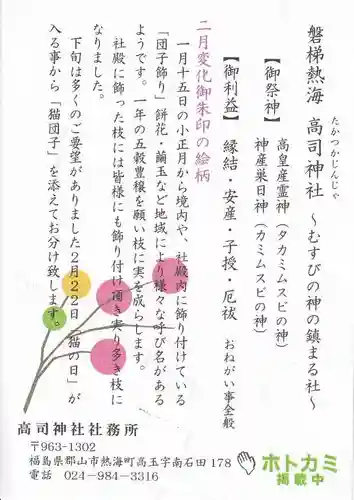 磐梯熱海　高司神社　～むすびの神の鎮まる社～
たかつかじんじゃ
【御祭神】　高皇産霊神（タカミムスビの神）
神産巣日神（カミムスビの神）
【御利益】　縁結・安産・子授・厄祓　おねがい事全般
二月変化御朱印の絵柄
一月十五日の小正月から境内や、社殿内に飾り付けている
「団子飾り」餅花・繭玉など地域により様々な呼び名がある
ようです。一年の五穀豊穣を願い枝に実を成らします。
社殿に飾った枝には皆様にも飾り付け頂き実り多き枝に
なりました。
下旬は多くのご要望がありました２月２２日「猫の日」が
入る事から「猫団子」を添えてお分け致します。
高司神社社務所
〒963-1302
福島県郡山市熱海町高玉字南石田 178
電話　024-984-3316
ホトカミ
掲載中